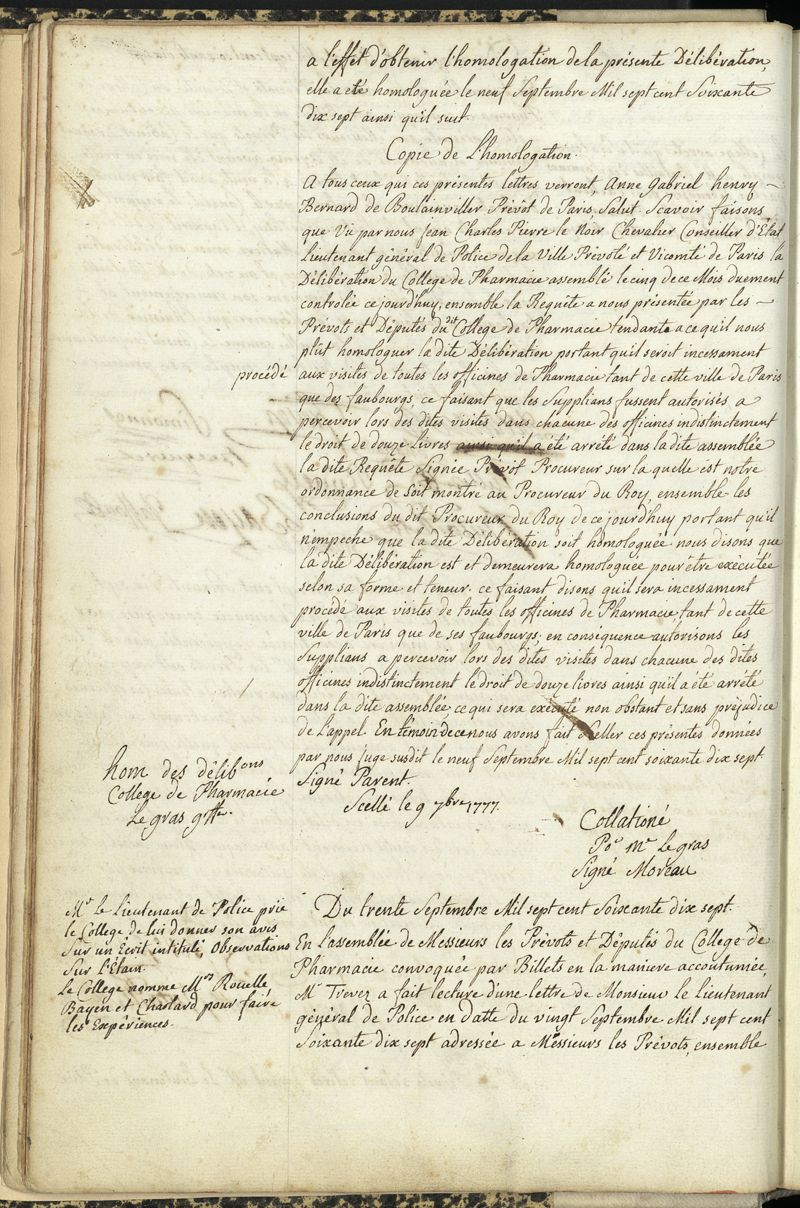 a l'effet d'obtenir l'homologation de la présente Délibération,
elle a eté homologuée le neuf Septembre Mil sept cent Soixante
dix sept ainsi qu'il suit.
Copie de L'homologation.
A tous ceux qui ces présentes lettres verront, Anne Gabriel henry -
Bernard de Boulainviller Prévôt de Paris, Salut. Scavoir faisons
que Vû par nous Jean Charles Pierre le Noir Chevalier Conseiller d'Etat
Lieutenant général de Police de la Ville Prévôté et Vicomté de Paris la
Délibération du College de Pharmacie assemblé le cinq de ce Mois duement
controlée ce jourd'huy, ensemble la Requête a nous présentée par les -
Prévots et Députés du dt College de Pharmacie tendante a ce qu'il nous
plût homologuer la dite Délibération portant qu'il seroit incessament
procédé
aux visites de toutes les officines de Pharmacie tant de cette ville de Paris
que des faubourgs, ce faisant que les Supplians fussent autorisés a
percevoir lors des dites visites dans chacune des officines indistinctement
le droit de douze Livres ainsi qu'il a été arrété dans la dite assemblée
la dite Requête Signée Prévôt Procureur sur la quelle est notre
ordonnance de soit montré au Procureur du Roy, ensemble les
conclusions du dit Procureur du Roy de ce jourd'huy portant qu'il
n'empeche que la dite Délibération soit homologuée nous disons que
la dite Délibération est et demeurera homologuée pour être exécutée
selon sa forme et teneur. ce faisant disons qu'il sera incessament
procédé aux visites de toutes les officines de Pharmacie tant de cette
ville de Paris que de ses faubourgs, en conséquence autorisons les
Supplians a percevoir lors des dites visites dans chacune des dites
officines indistinctement le droit de douze livres ainsi qu'il a été arrété
dans la dite assemblée, ce qui sera exécuté non obstant et sans préjudice
de l'appel. En témoin de ce nous avons fait sceller ces présentes données
par nous juge susdit le neuf Septembre Mil sept cent soixante dix sept.
Signé Parent.
Scellé le 9 7bre 1777.
hom des délibons
College de Pharmacie
Le gras gffe.
Collationé
Po. Mr Le gras
Signé Moreau
Mr Le Lieutenant de Police prie
le College de lui donner son avis
Sur un Ecrit intitulé, Observations
Sur L'Étain.
Le College nomme Mrs Rouelle,
Bayen et Charlard pour faire
les Expériences.
Du trente Septembre Mil sept cent Soixante dix sept.
En l'assemblée de Messieurs les Prévots et Députés du College de
Pharmacie convoquée par Billets en la maniere accoutumée,
Mr Trevez a fait lecture d'une lettre de Monsieur le Lieutenant
général de Police en datte du vingt Septembre Mil sept cent
Soixante dix sept adressée a Messieurs les Prévots, ensemble